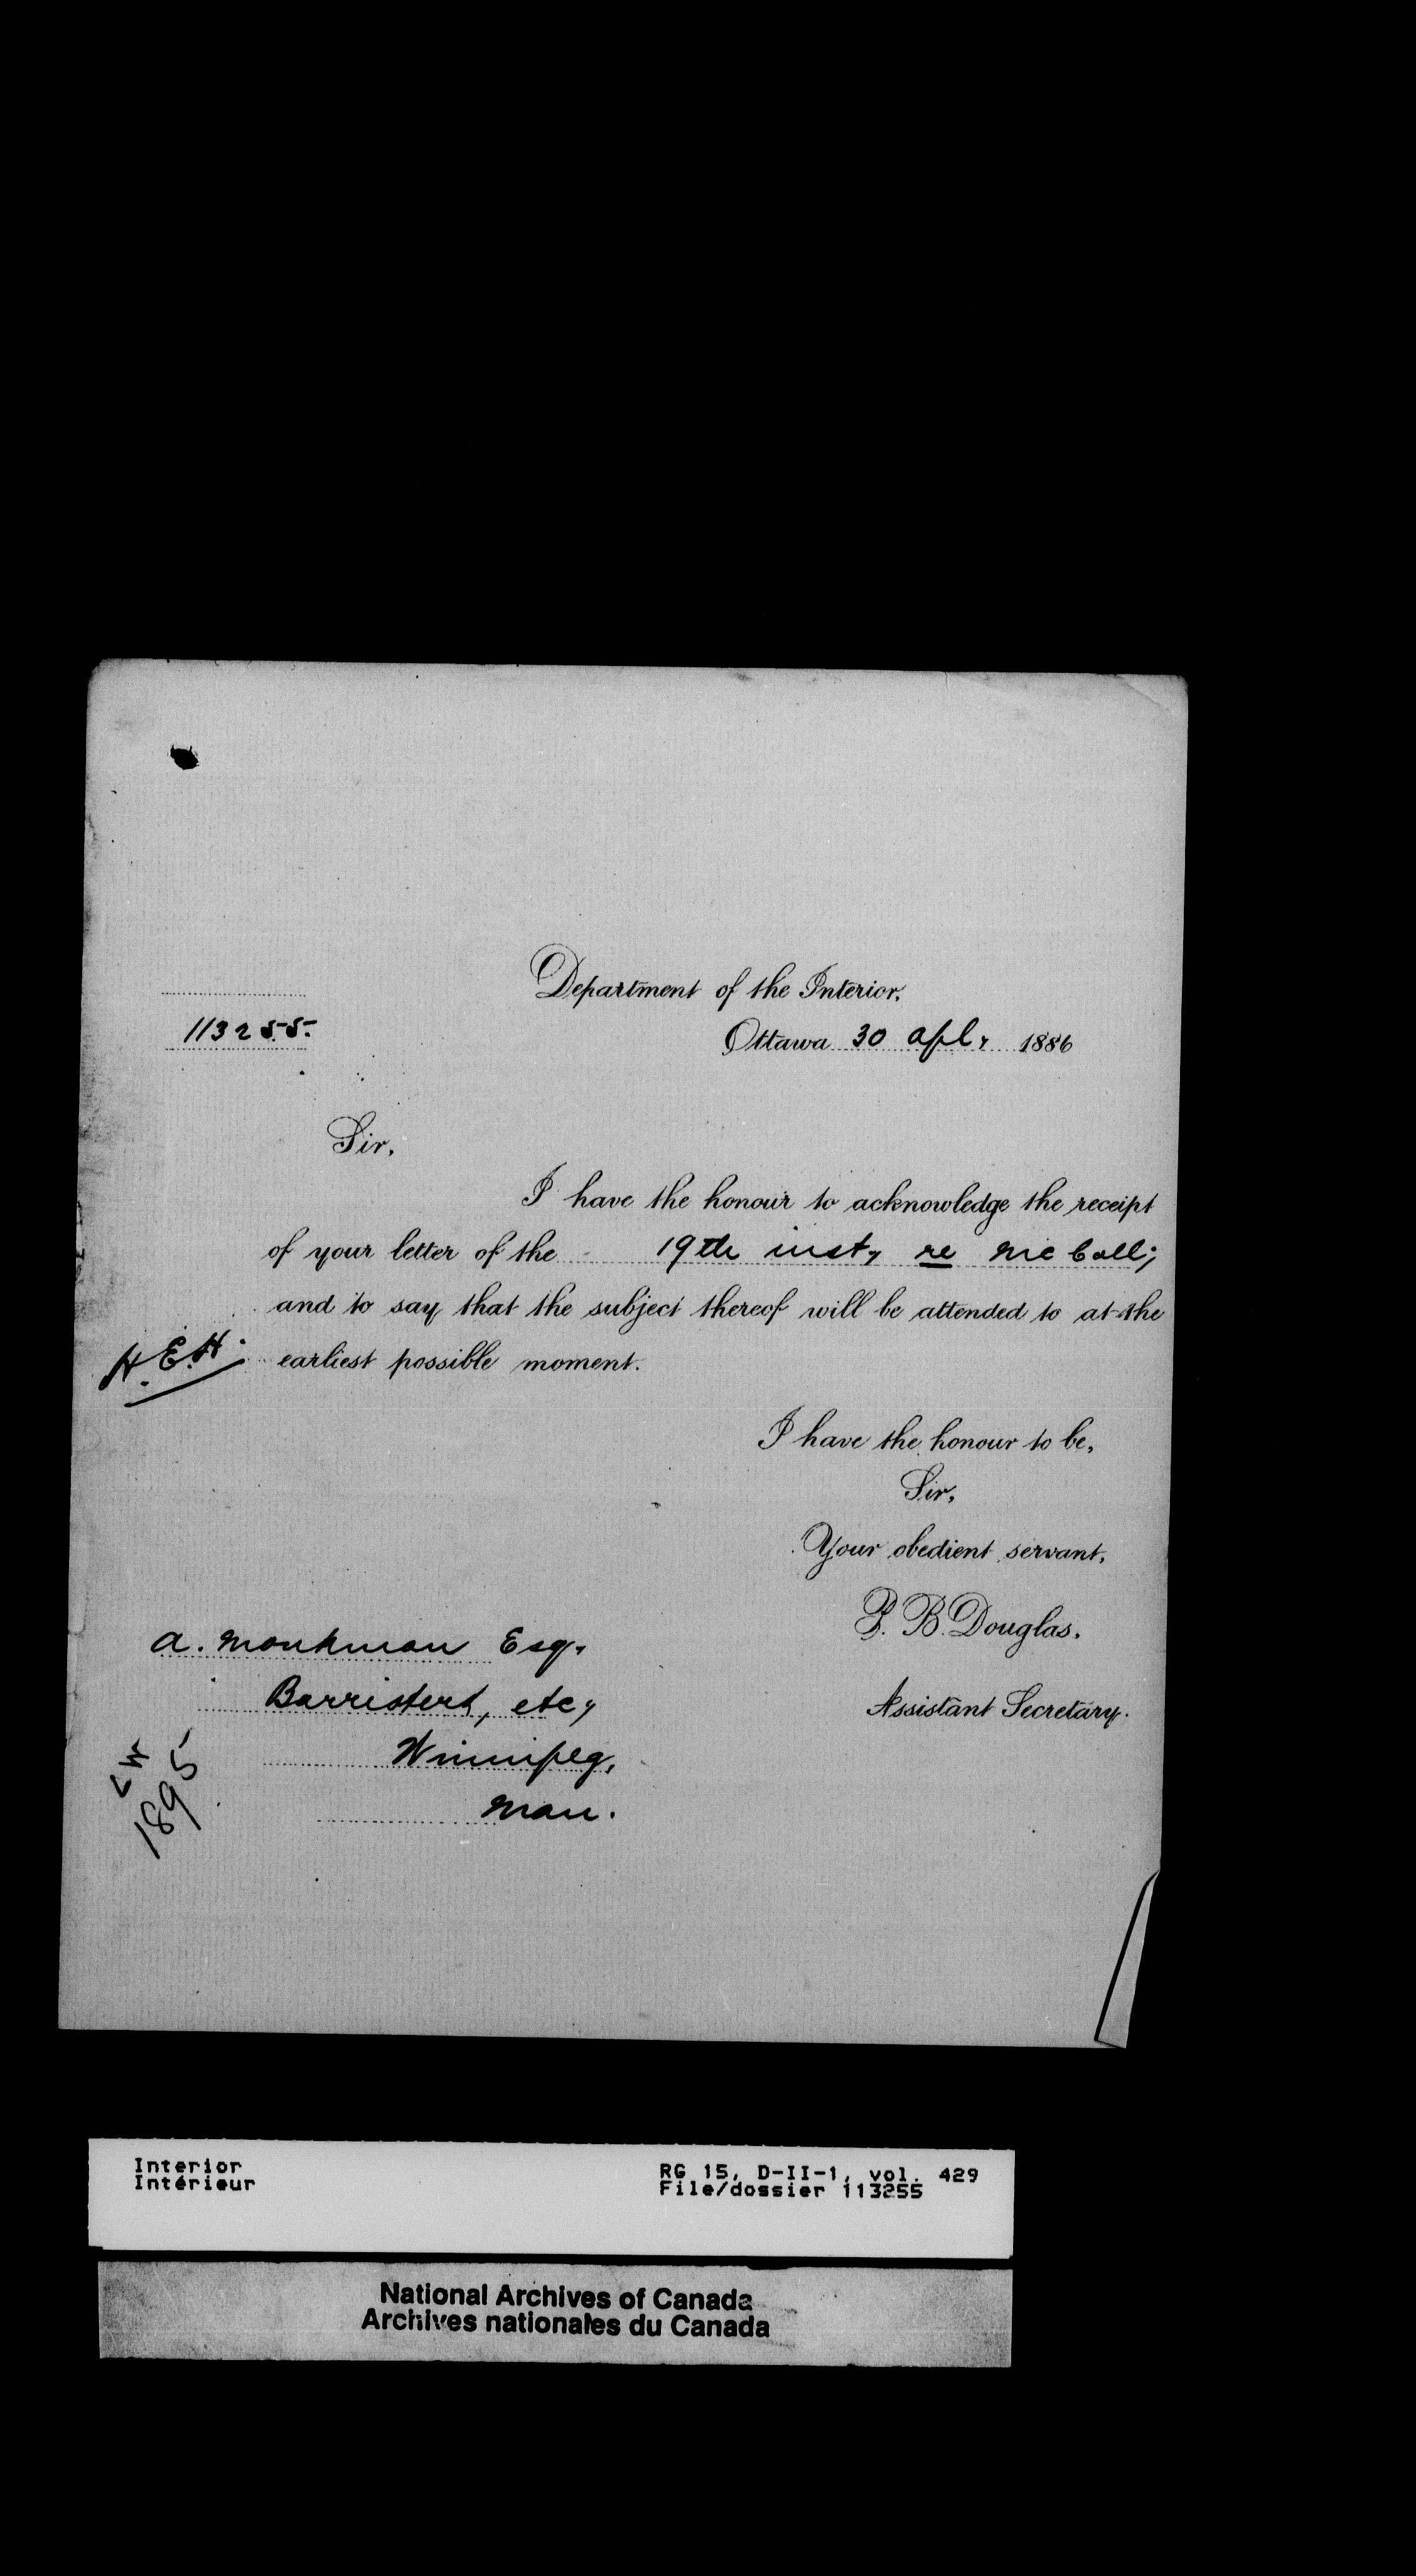 Department of the Interior.
113255.
Ottawa 30 Apl, 1886
Sir,
I have the honour to acknowledge the receipt
of your letter of the 19th inst, re McColl;
and to say that the subject thereof will be attended to at the
H.E.H. earliest possible moment.
I have the honour to be,
Sir,
Your obedient servant,
P. B. Douglas.
Assistant Secretary.
A. Monkman Esq,
Barristert, etc,
Winnipeg,
Man.
1895
Interior
Intérieur
RG 15, D-II-1, vol. 429
File/dossier 113255
National Archives of Canada
Archives nationales du Canada